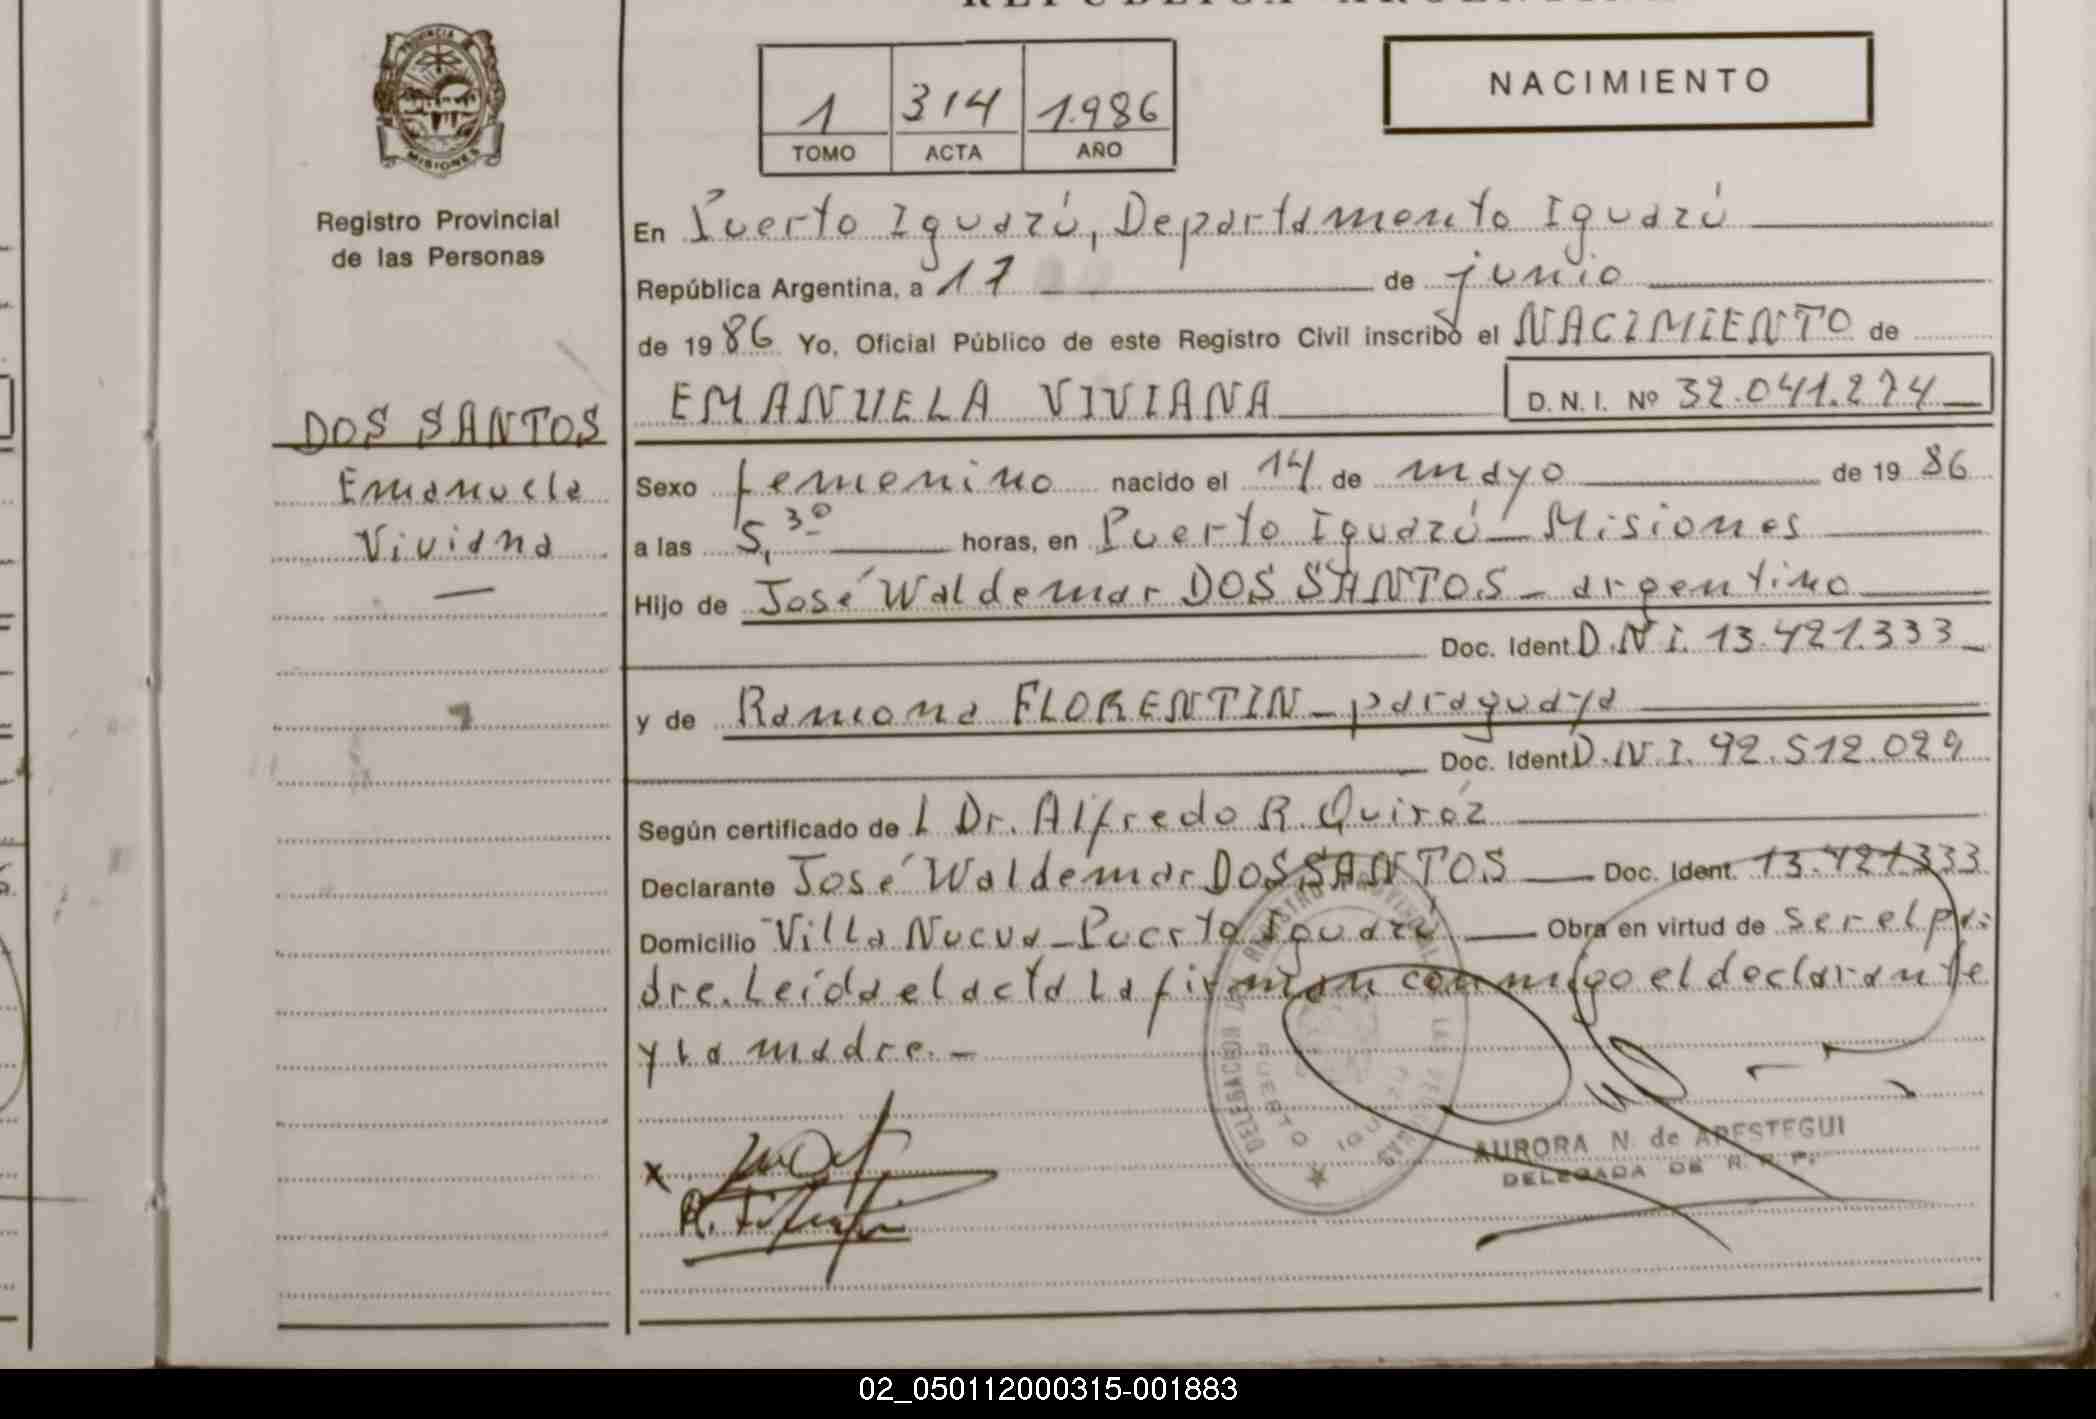 REPUBLICA ARGENTINA
PROVINCIA DE
MISIONES
Registro Provincial
de las Personas
1 314 1.986
TOMO ACTA AÑO
NACIMIENTO
En Puerto Iguazú, Departamento Iguazú
República Argentina, a 17 de junio
de 19 86 Yo, Oficial Público de este Registro Civil inscribo el NACIMIENTO de
EMANUELA VIVIANA D. N. I. Nº 32.041.274
DOS SANTOS
Emanuela
Viviana
Sexo femenino nacido el 14 de mayo de 19 86
a las 5,30 horas, en Puerto Iguazú - Misiones
Hijo de José Waldemar DOS SANTOS - argentino
Doc. Ident. D.N.I. 13.421.333
y de Ramona FLORENTIN - paraguaya
Doc. Ident. D.N.I. 92.512.029
Según certificado de l Dr. Alfredo R. Quiróz
Declarante José Waldemar DOS SANTOS Doc. Ident. 13.421.333
Domicilio Villa Nueva - Puerto Iguazú Obra en virtud de ser el pa-
dre. Leída el acta la firman conmigo el declarante
y la madre. -
DELEGACION DEL REGISTRO PROVINCIAL DE LAS PERSONAS
PUERTO IGUAZU
AURORA N. de ARESTEGUI
DELEGADA DE R. P. P.
02_050112000315-001883